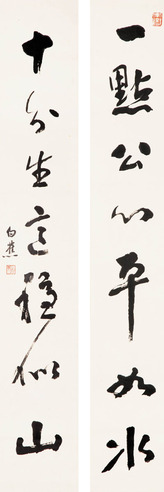 一點公心平如水
十分生意穩似山
白蕉